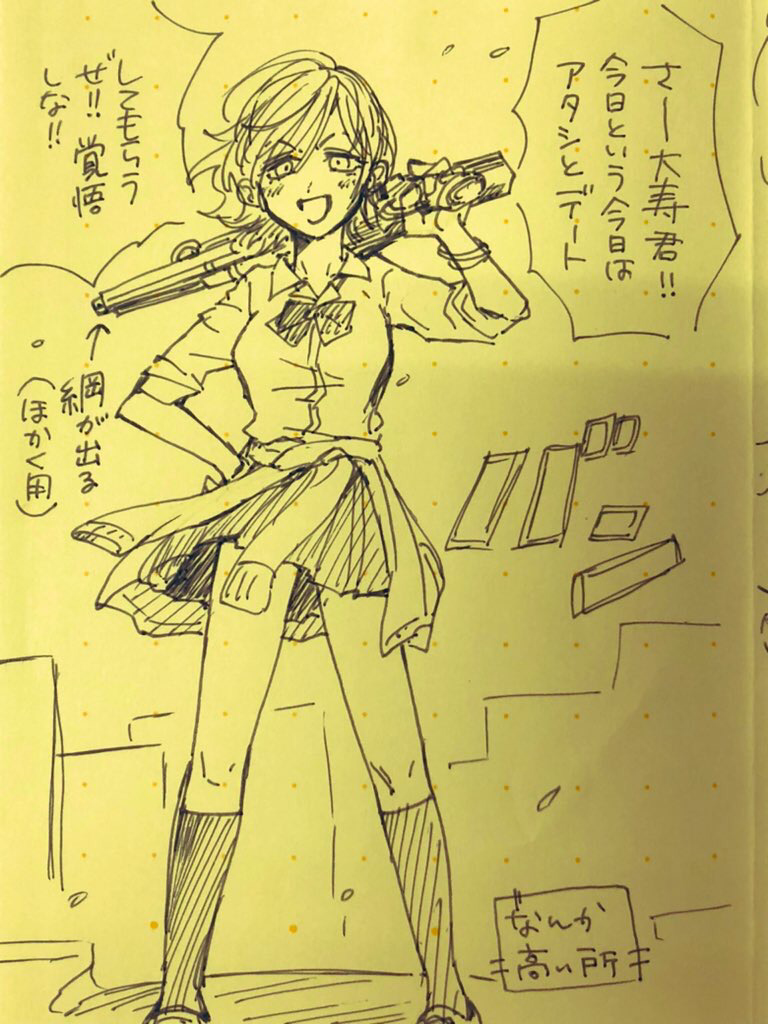 さー大寿君!!
今日という今日は
アタシとデート
してもらう
ぜ!! 覚悟
しな!!
↑
綱が出る
(ほかく用)
バン
なんか
高い所